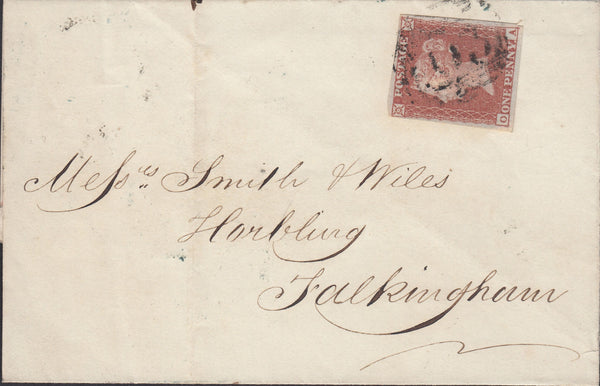 POSTAGE
ONE PENNY
O A
Mess.rs Smith & Wiles
Horbling
Falkingham